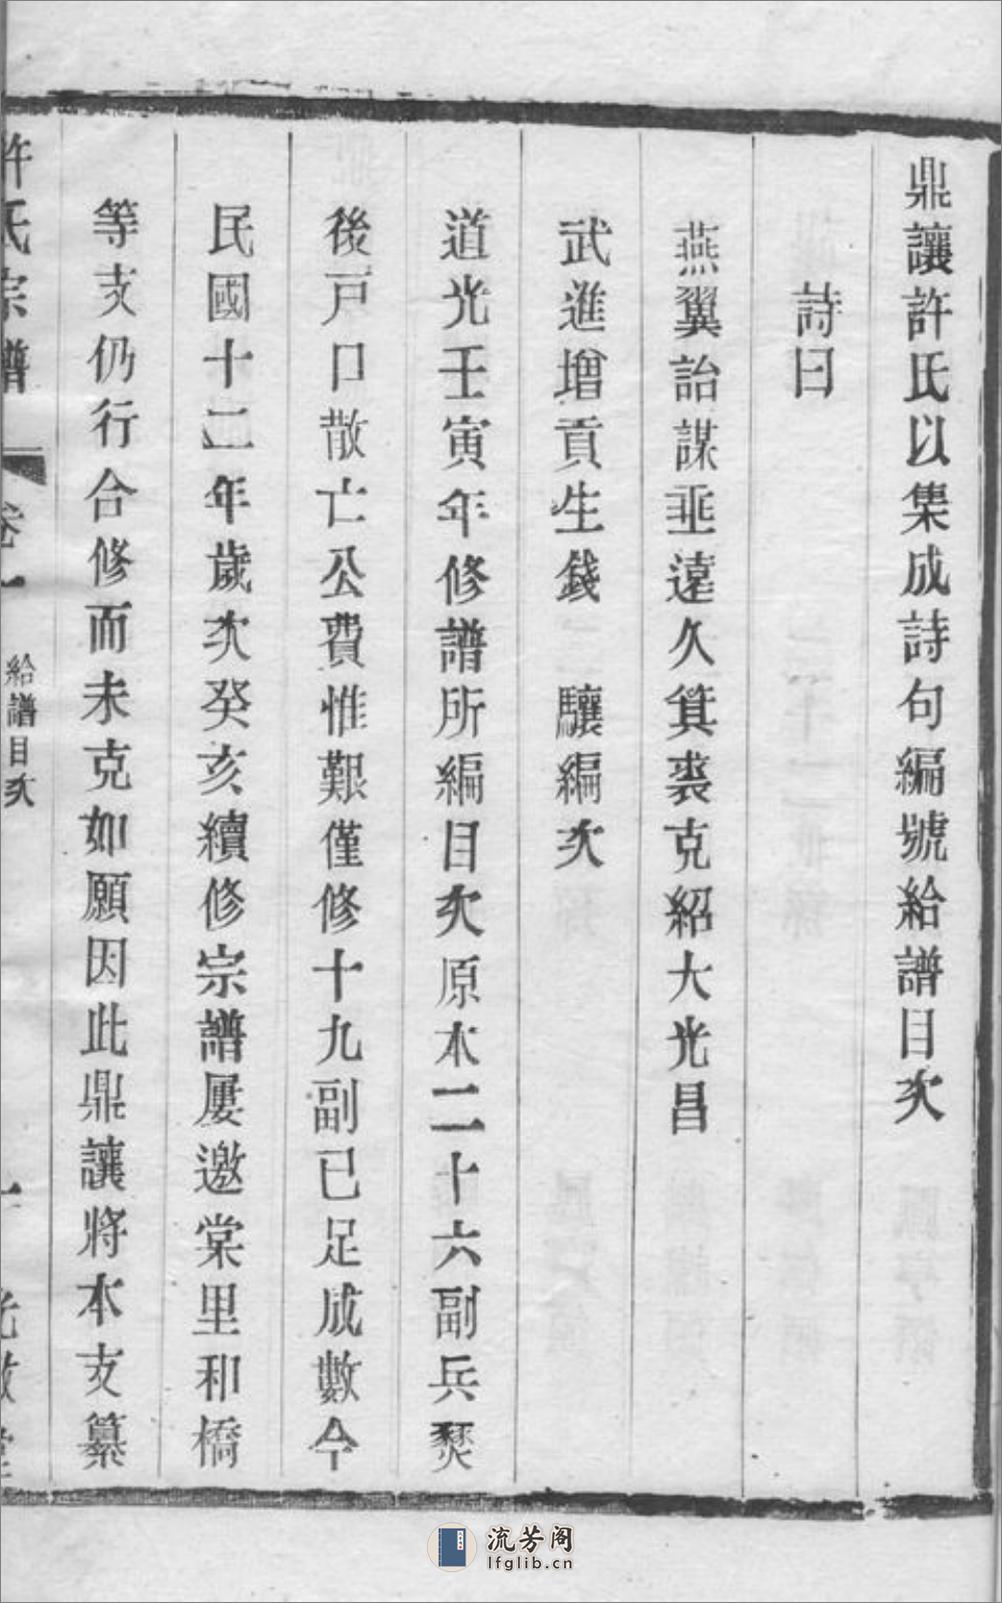 鼎讓許氏以集成詩句編號給譜目次
詩曰
燕翼詒謀垂遠久箕裘克紹大光昌
武進增貢生錢 驤編次
道光壬寅年修譜所編目次原本二十六副兵燹
後戸口散亡公費惟艱僅修十九副已足成數今
民國十二年歲次癸亥續修宗譜屢邀棠里和橋
等支仍行合修而未克如願因此鼎讓將本支纂
許氏宗譜 卷一 給譜目次 一
流芳阁
lfglib.cn